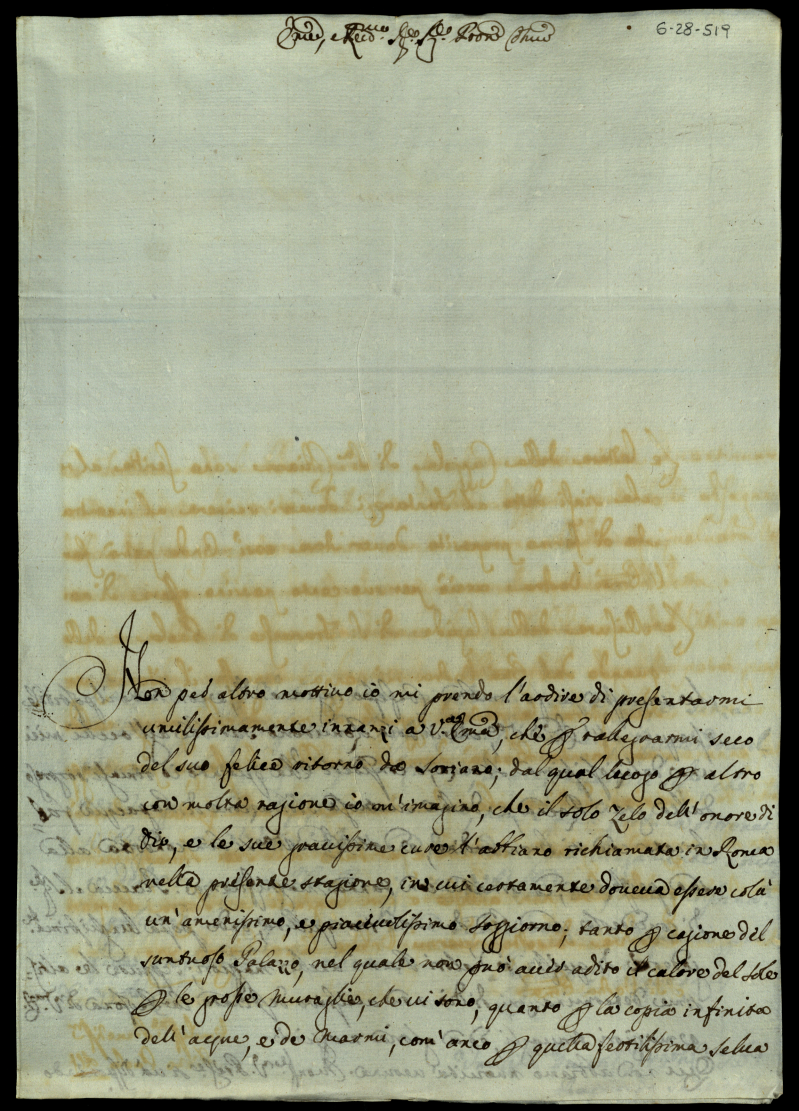 Em.o, e Rev.mo Sig.re Sig.re Pron Col.mo
6-28-519
Non per altro mottivo io mi prendo l'ardire di presentarmi
umilissimamente innanzi a V.ra Em.a, che p rallegrarmi seco
del suo felice ritorno da Soriano; dal qual luogo p altro
con molta ragione io m'imagino, che il solo zelo dell'onore di
Dio, e le sue gravissime cure l'abbiano richiamata in Roma
nella presente stagione, in cui certamente doveva essere colà
un'amenissimo, e piacevolissimo soggiorno; tanto p cagione del
suntuoso Palazzo, nel quale non può aver adito il calore del Sole
p le grosse muraglie, che vi sono, quanto p la copia infinita
dell'acque, e de Marmi, com'anco p quella fertilissima selva